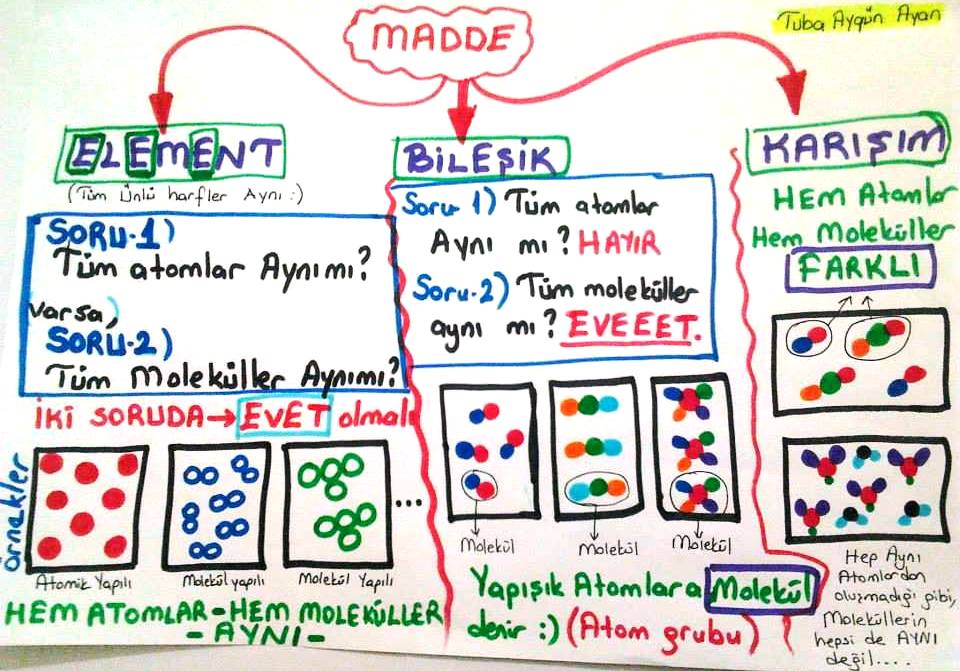 Tuba Aygün Ayan
MADDE
ELEMENT
(Tüm Ünlü harfler Aynı :)
SORU-1)
Tüm atomlar Aynımı?
varsa,
SORU-2)
Tüm Moleküller Aynımı?
İKİ SORUDA → EVET olmalı
örnekler
...
Atomik Yapılı
Molekül yapılı
Molekül Yapılı
HEM ATOMLAR - HEM MOLEKÜLLER
- AYNI -
BİLEŞİK
Soru- 1) Tüm atomlar
Aynı mı? HAYIR
Soru-2) Tüm moleküller
aynı mı? EVEEET.
Molekül
Molekül
Molekül
Yapışık Atomlara Molekül
denir :) (Atom grubu)
KARIŞIM
HEM Atomlar
Hem Moleküller
FARKLI
Hep Aynı
Atomlardan
oluşmadığı gibi,
Moleküllerin
hepsi de AYNI
değil....